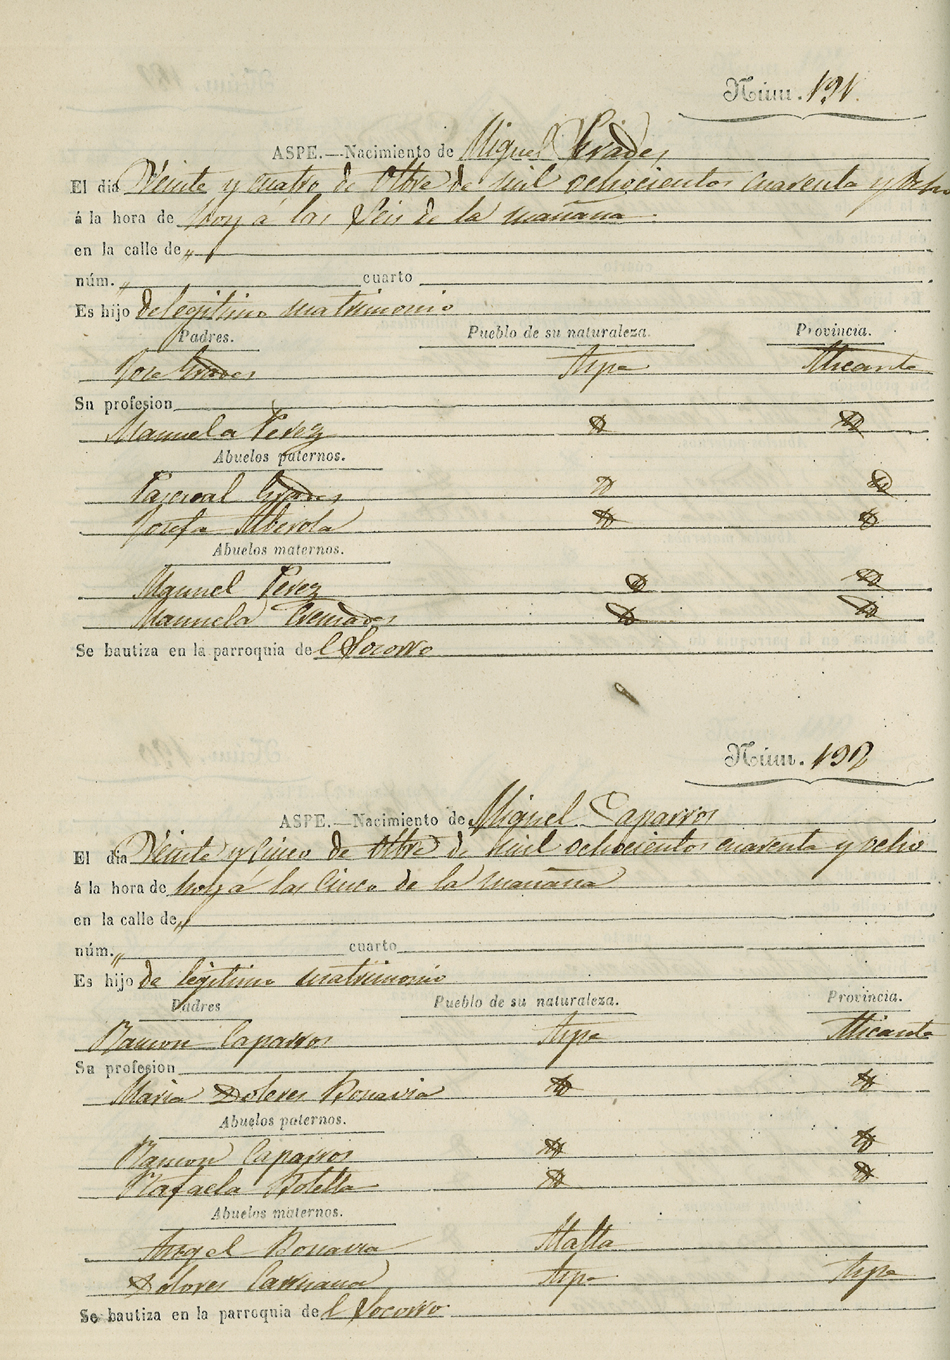 Núm. 191.
ASPE.—Nacimiento de Miguel
El dia Veinte y cuatro de Otbre de mil ochocientos cuarenta y ocho
á la hora de hoy á las Seis de la mañana
en la calle de „
núm. „ cuarto
Es hijo de legitimo matrimonio
Padres. Pueblo de su naturaleza. Provincia.
Jose Aspe Alicante
Su profesion
Manuela Perez
Abuelos paternos.
Pascual
Josefa Alberola
Abuelos maternos.
Manuel Perez
Manuela
Se bautiza en la parroquia de l Socorro
Núm. 192
ASPE.—Nacimiento de Miguel Caparros
El dia Veinte y Cinco de Otbre de mil ochocientos cuarenta y ocho
á la hora de hoy á las Cinco de la mañana
en la calle de „
núm. „ cuarto
Es hijo de legitimo matrimonio
Padres Pueblo de su naturaleza. Provincia.
Ramon Caparros Aspe Alicante
Su profesion
Maria Dolores Bonavia
Abuelos paternos.
Ramon Caparros
Rafaela Botella
Abuelos maternos.
Angel Bonavia Malta
Dolores Caruana Aspe Aspe
Se bautiza en la parroquia de l Socorro